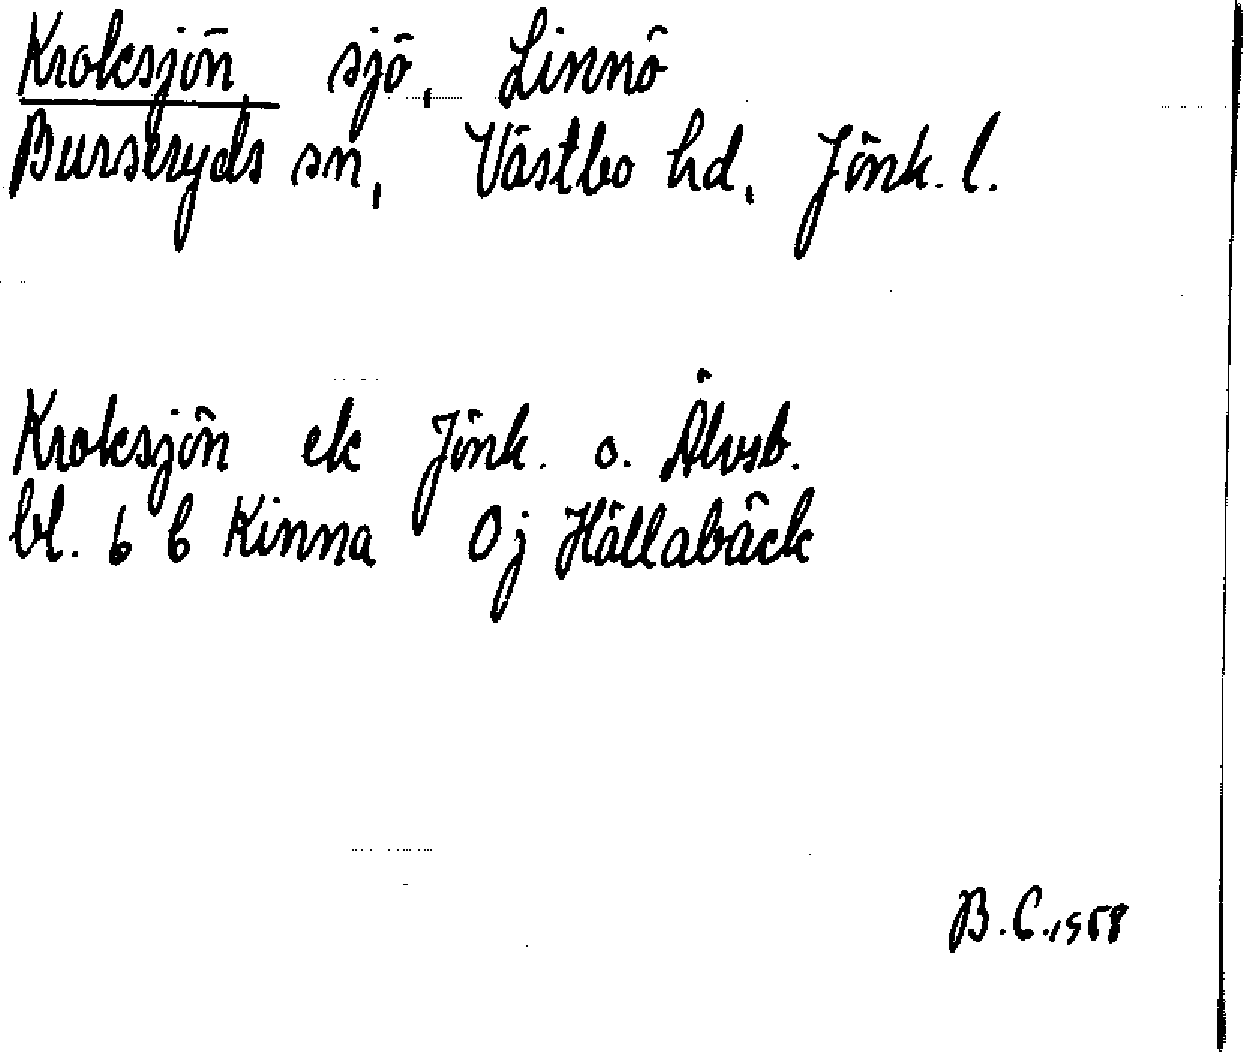 Kroksjön, sjö, Linnö
Burseryds sn, Västbo hd, Jönk. l.
Kroksjön ek Jönk. o. Älvsb.
bl. 6 b Kinna Oj Hällabäck
B.C. 1958